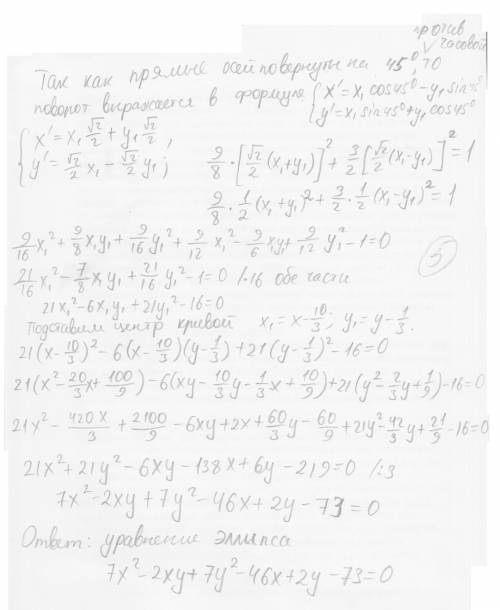 против
часовой
Так как прямые осей повернуты на 45°, то
поворот выражается в формуле { x' = x₁ cos45° - y₁ sin45°
y' = x₁ sin45° + y₁ cos45°
{ x' = x₁ √2/2 + y₁ √2/2,
y' = √2/2 x₁ - √2/2 y₁;
9/8 · [√2/2 (x₁+y₁)]² + 3/2 [√2/2 (x₁-y₁)]² = 1
9/8 · 1/2 (x₁+y₁)² + 3/2 · 1/2 (x₁-y₁)² = 1
9/16 x₁² + 9/8 x₁y₁ + 9/16 y₁² + 9/12 x₁² - 9/6 x₁y₁ + 9/12 y₁² - 1 = 0
5
21/16 x₁² - 7/8 x₁y₁ + 21/16 y₁² - 1 = 0 /·16 обе части
21x₁² - 6x₁y₁ + 21y₁² - 16 = 0
Подставим центр кривой x₁ = x - 10/3; y₁ = y - 1/3.
21(x - 10/3)² - 6(x - 10/3)(y - 1/3) + 21(y - 1/3)² - 16 = 0
21(x² - 20/3 x + 100/9) - 6(xy - 10/3 y - 1/3 x + 10/9) + 21(y² - 2/3 y + 1/9) - 16 = 0
21x² - 420x/3 + 2100/9 - 6xy + 2x + 60/3 y - 60/9 + 21y² - 42/3 y + 21/9 - 16 = 0
21x² + 21y² - 6xy - 138x + 6y - 219 = 0 /:3
7x² - 2xy + 7y² - 46x + 2y - 73 = 0
Ответ: уравнение эллипса
7x² - 2xy + 7y² - 46x + 2y - 73 = 0